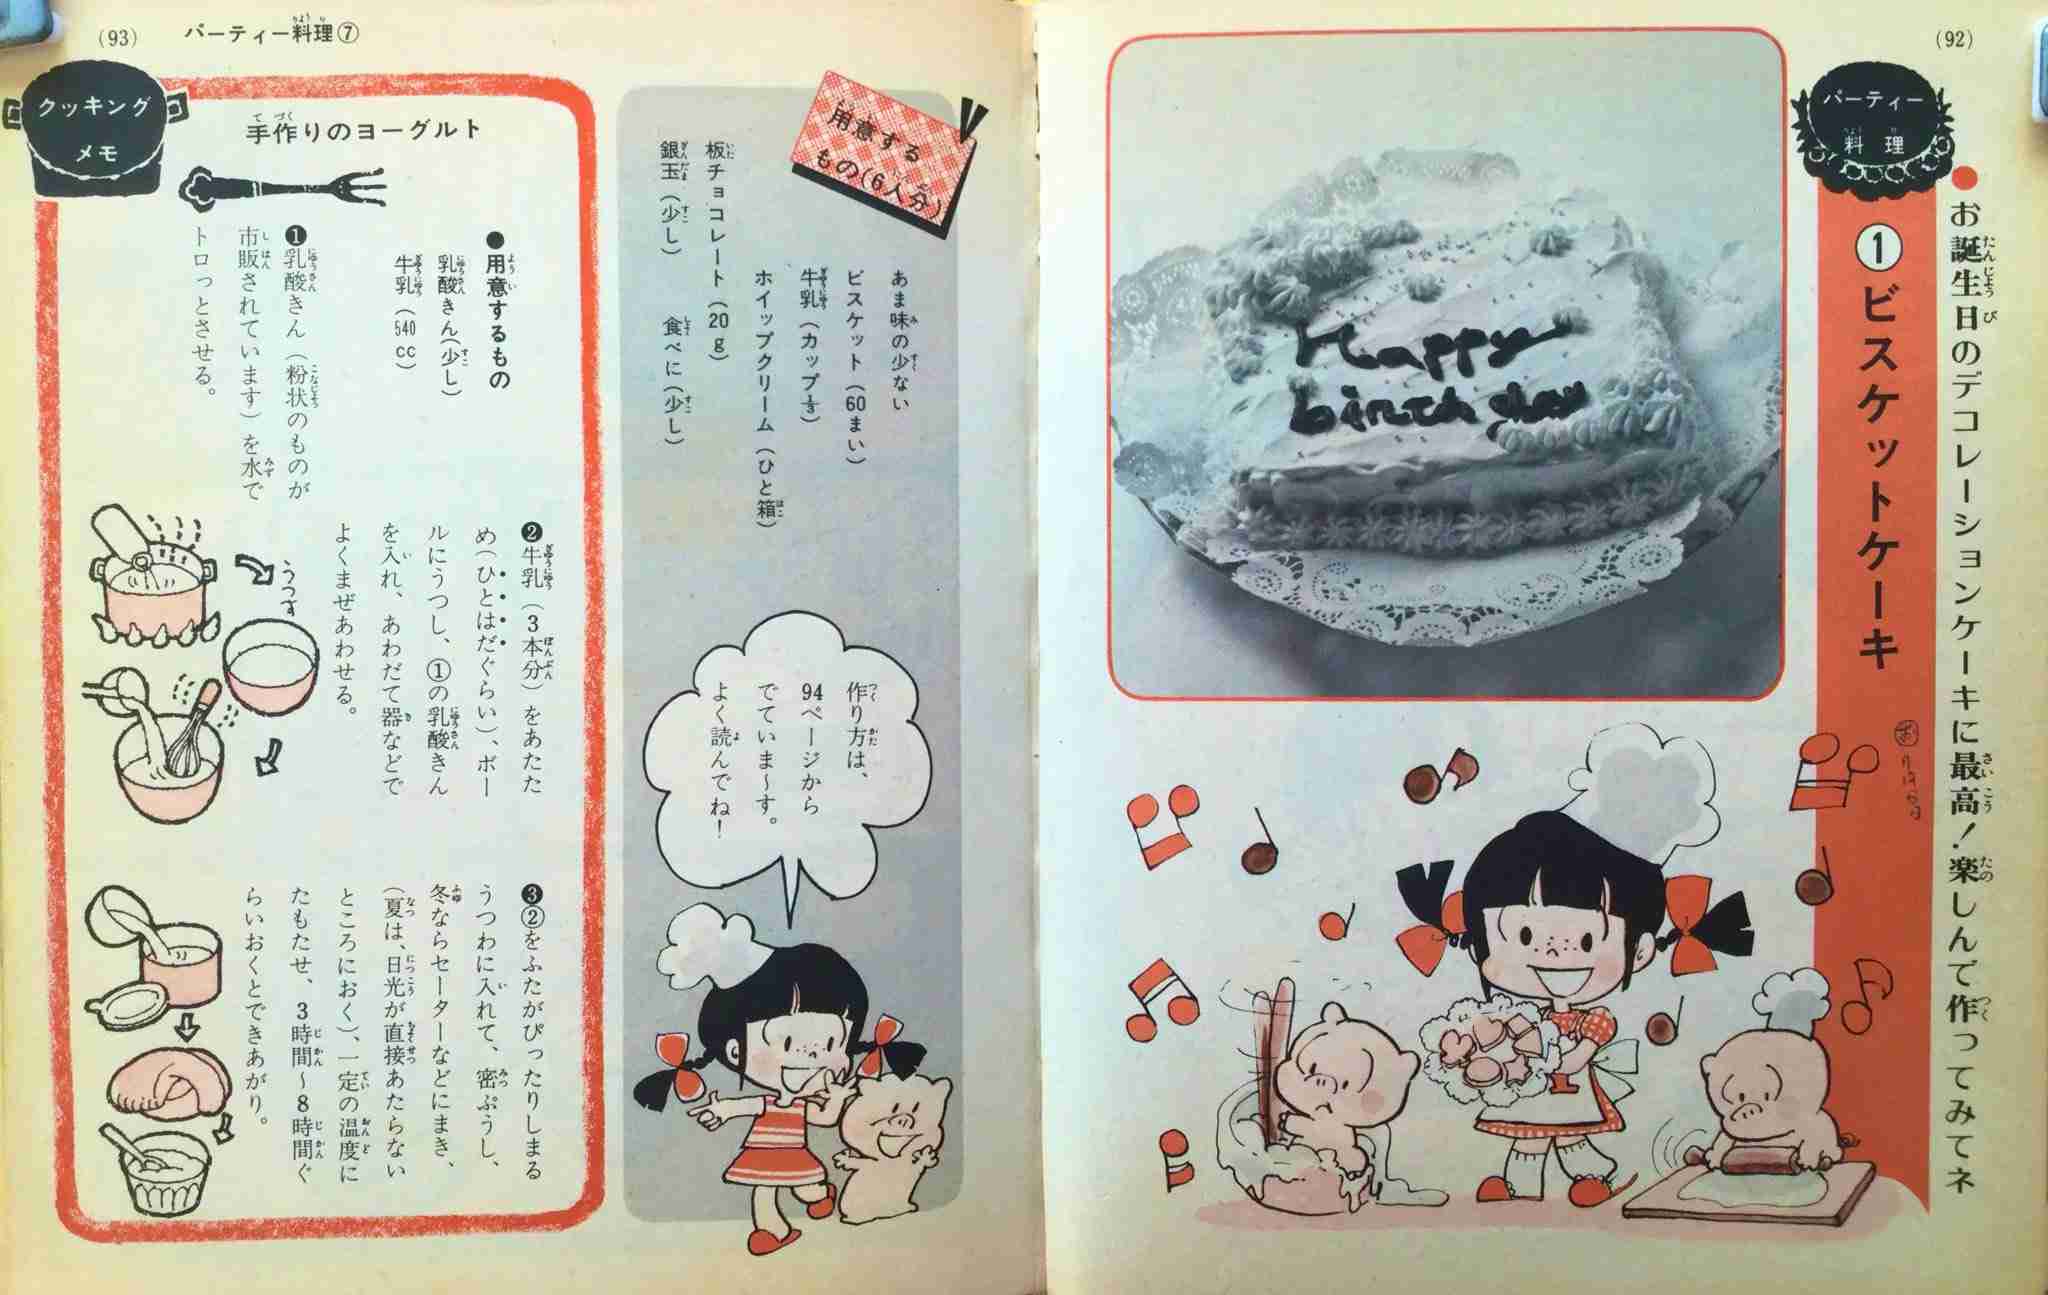 (92)
パーティー
料理
●お誕生日のデコレーションケーキに最高！楽しんで作ってみてネ
①ビスケットケーキ
Happy
birthday
(93)
パーティー料理⑦
用意する
もの(6人分)
あま味の少ない
ビスケット(60まい)
牛乳(カップ⅓)
ホイップクリーム(ひと箱)
板チョコレート(20g)
銀玉(少し)
食べに(少し)
作り方は、
94ページから
でていま〜す。
よく読んでね！
クッキング
メモ
手作りのヨーグルト
●用意するもの
乳酸きん(少し)
牛乳(540cc)
❶乳酸きん(粉状のものが
市販されています)を水で
トロっとさせる。
❷牛乳(3本分)をあたた
め(ひとはだぐらい)、ボー
ルにうつし、①の乳酸きん
を入れ、あわだて器などで
よくまぜあわせる。
うつす
❸②をふたがぴったりしまる
うつわに入れて、密ぷうし、
冬ならセーターなどにまき、
(夏は、日光が直接あたらない
ところにおく)、一定の温度に
たもたせ、3時間〜8時間ぐ
らいおくとできあがり。